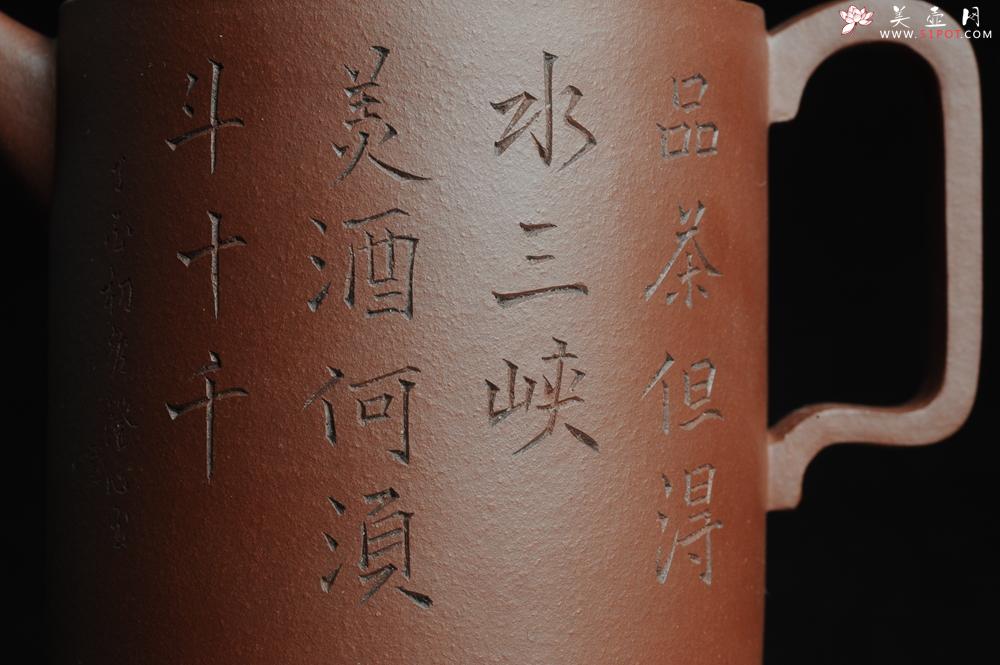 品茶但得
水三峡
美酒何須
斗十千
美壶网
WWW.51POT.COM